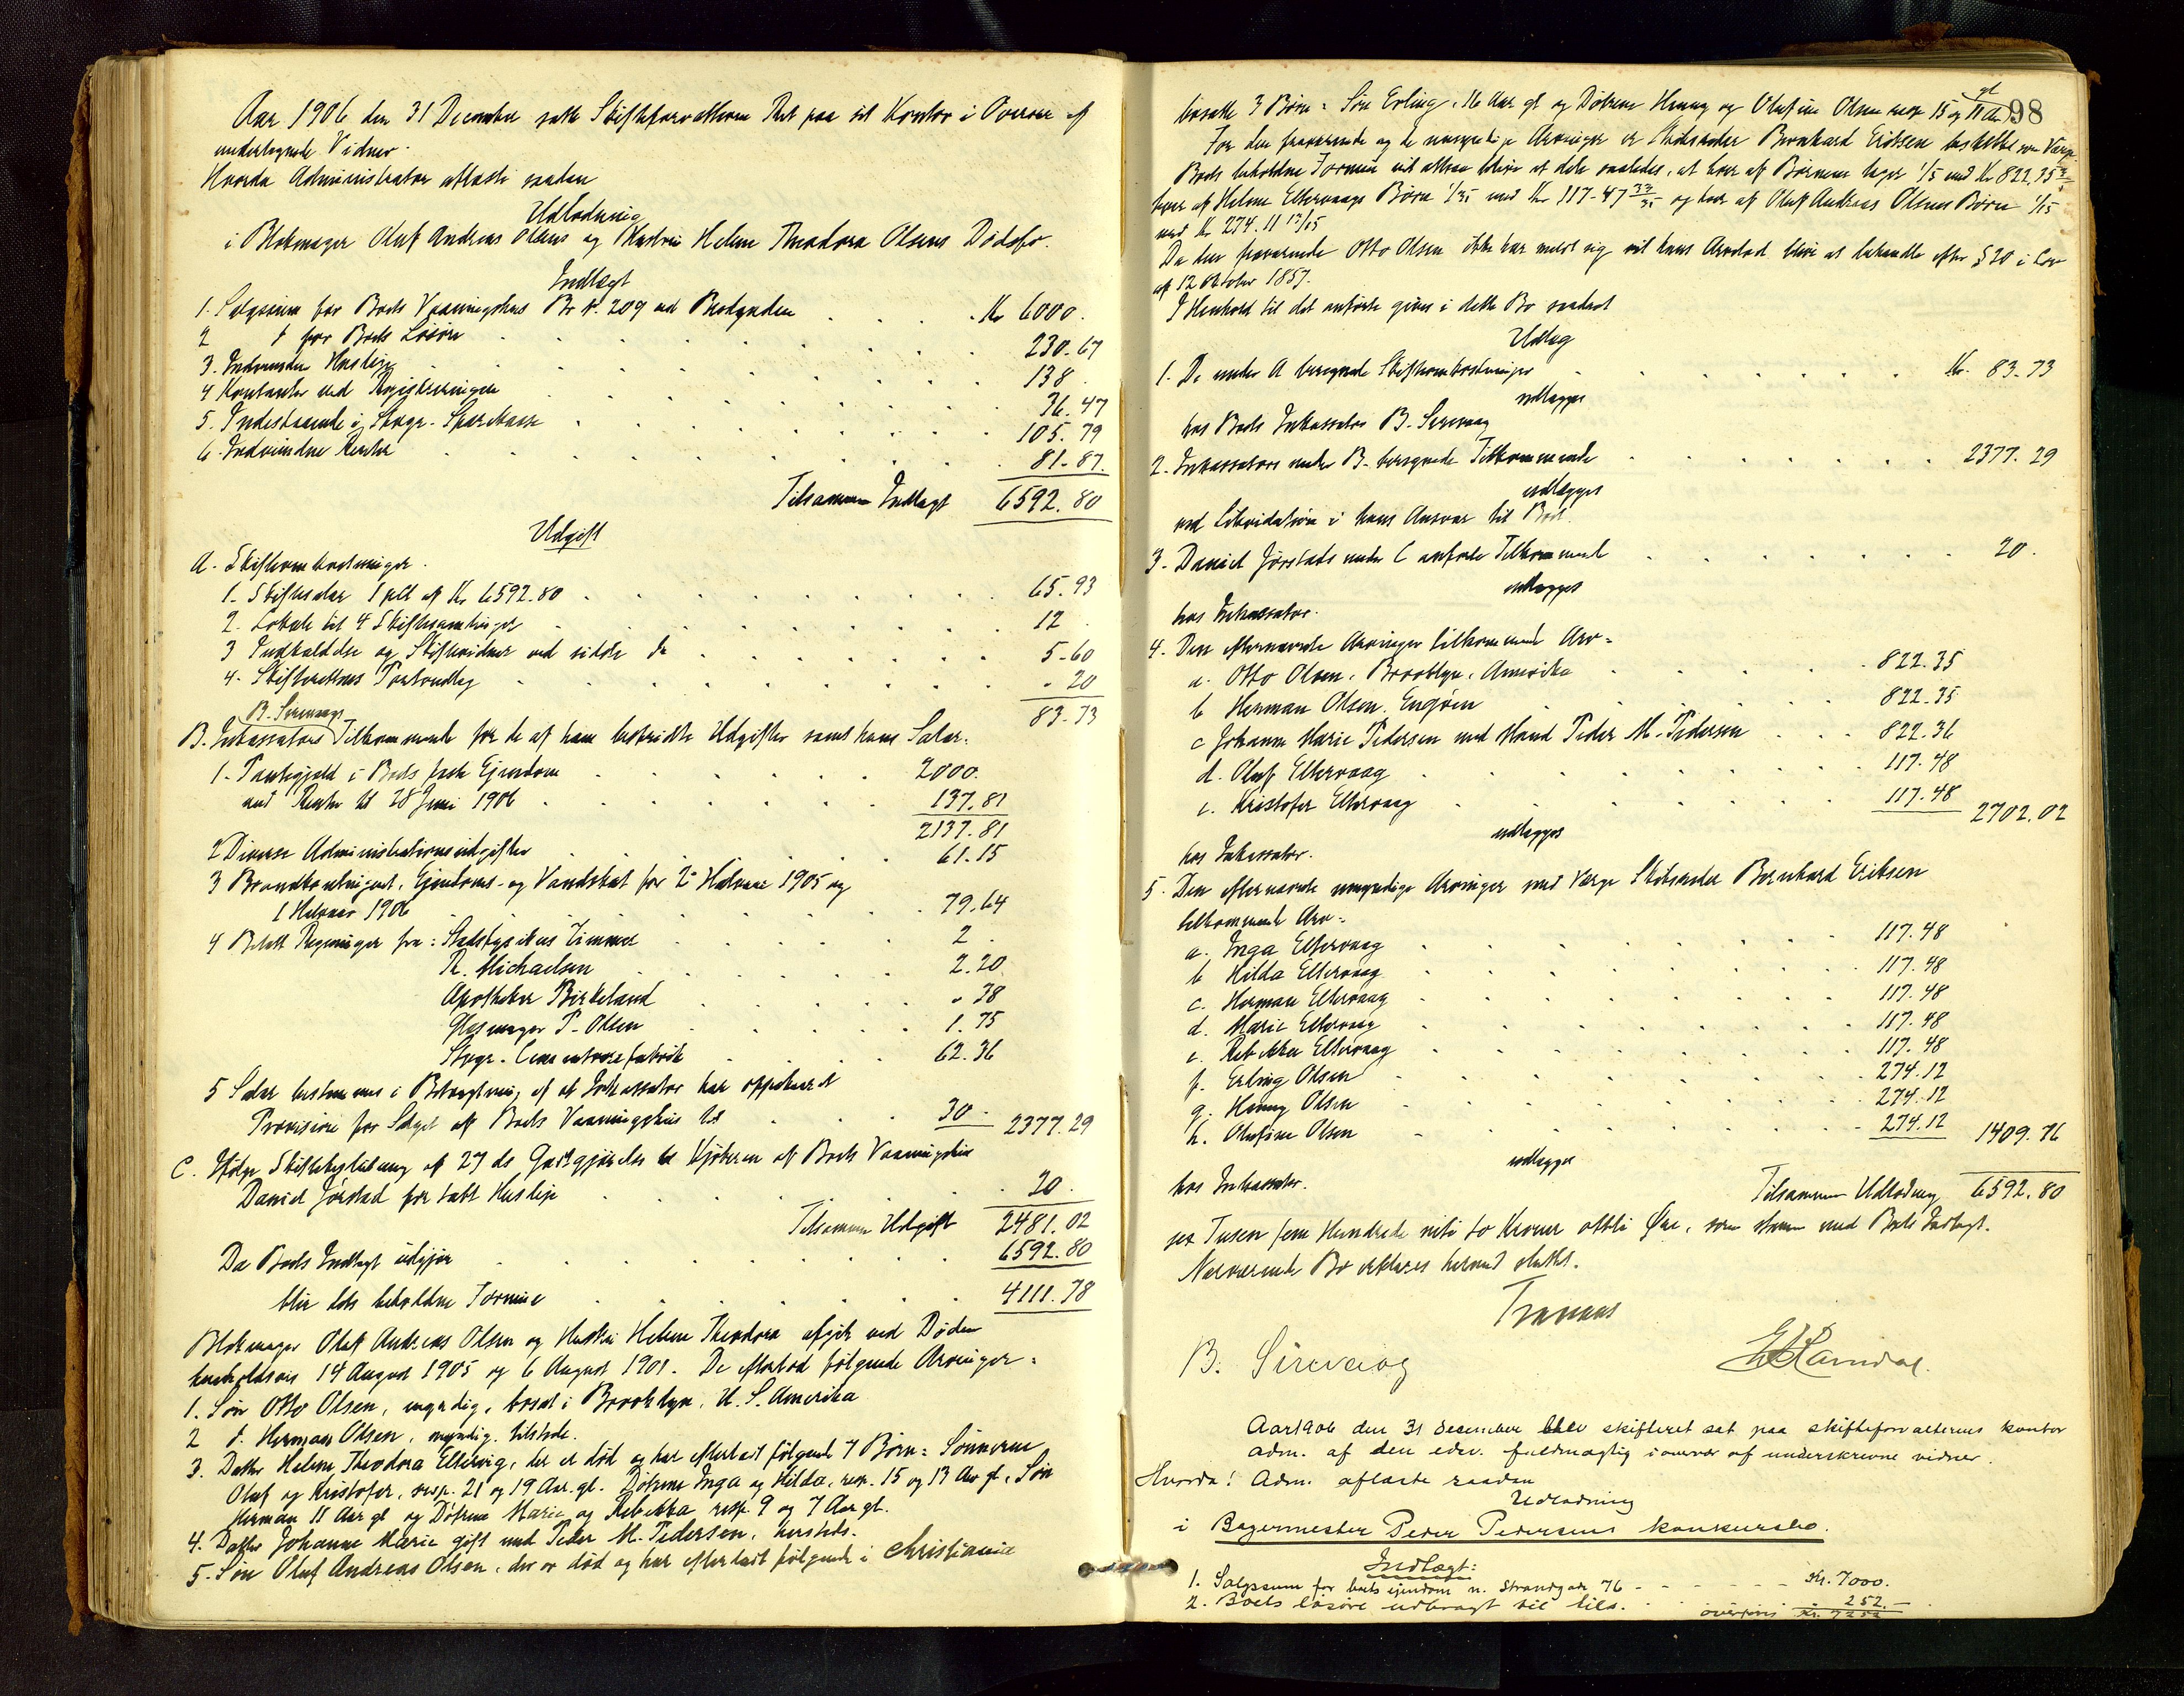 Aar 1906 den 31 December satte Skifteforvalteren Ret paa sit Kontor i Overvær af
undertegnede Vidner.
Hvorda Administrator aflæste saadan
Udlodning
i Blokmager Oluf Andreas Olsens og Hustru Helene Theodora Olsens Dødsbo.
Indtægt
1. Salgssum for Boets Vaaningshus Br. N. 209 ved Bredgaden Kr 6000.
2 " for Boets Løsøre 230.67
3. Indvunden Husleje 138
4 Kontanter ved Registreringen 36.47
5. Indestaaende i Stvgr. Sparekasse 105.79
6. Indvundne Renter 81.87
Tilsammen Indtægt 6592.80
Udgift
A. Skifteomkostninger.
1. Skiftesalær 1 pCt af Kr 6592.80 65.93
2. Lokale til 4 Skiftesamlinger 12
3 Indkaldelse og Skiftevidner ved sidste do 5.60
4. Skifterettens Portoudlæg - 20
83.73
B. Sirevaags
B. Inkassators Tilkommende for de af ham bestridte Udgifter samt hans Salær:
1. Pantegjæld i Boets faste Ejendom 2000.
med Renter til 28 Juni 1906 137.81
2137.81
2 Diverse Administrationsudgifter 61.15
3 Brandkontingent, Ejendoms- og Vandskat for 2det Halvaar 1905 og
1 Halvaar 1906 79.64
4 Betalt Regninger fra: Stadsfysikus Zimmer 2.
R. Michaelsen 2.20
Apotheker Birkeland - 38
Glasmager P. Olsen 1.75
Stvgr. Cementvarefabrik 62.36
5 Salær bestemmes i Betragtning af at Inkassator har oppebaaret
Provision for Salget af Boets Vaaningshus til 30. 2377.29
C. Ifølge Skiftebeslutning af 27 ds Godtgjørelse til Kjøberen af Boets Vaaningshus
Daniel Jørstad for tabt Husleje 20.
Tilsammen Udgift 2481.02
Da Boets Indtægt udgjør 6592.80
blir dets beholdne Formue 4111.78
Blokmager Oluf Andreas Olsen og Hustru Helene Theodora afgik ved Døden
henholdsvis 14 August 1905 og 6 August 1901. De efterlod følgende Arvinger:
1. Søn Otto Olsen, myndig, bosat i Brooklyn, U. S. Amerika
2 d. Herman Olsen, myndig, tilstede.
3. Datter Helene Theodora Eltervaag, der er død og har efterladt følgende 7 Børn: Sønnerne
Oluf og Kristofer, resp. 21 og 19 Aar gl. Døtrene Inga og Hilda, resp. 15 og 13 Aar gl, Søn
Herman 11 Aar gl og Døtrene Marie og Rebekka resp. 9 og 7 Aar gl.
4. Datter Johanne Marie gift med Peder M. Pedersen, hersteds.
5. Søn Oluf Andreas Olsen, der er død og har efterladt følgende i Christiania
98
bosatte 3 Børn: Søn Erling, 16 Aar gl og Døtrene Henny og Olufine Olsen resp 15 og 11 Aar gl
For den fraværende og de umyndige Arvinger er Skibsreder Bernhard Eriksen beskikket som Værge.
Boets beholdne Formue vil altsaa blive at dele saaledes, at hver af Børnene tager 1/5 med Kr 822,35 3/5
hver af Helene Eltervaags Børn 1/35 med Kr 117.47 33/35 og hver af Oluf Andreas Olsens Børn 1/15
med Kr 274.11 13/15
Da den fraværende Otto Olsen ikke har meldt sig vil hans Arvelod blive at behandle efter § 20 i Lov
af 12 Oktober 1857.
I Henhold til det anførte gives i dette Bo saadant
Udlæg
1. De under A beregnede Skifteomkostninger Kr. 83.73
udlægges
hos Boets Inkassator B. Sirevaag
2. Inkassators under B. beregnede Tilkommende 2377.29
udlægges
ved Likvidation i hans Ansvar til Boet.
3. Daniel Jørstads under C anførte Tilkommende 20.
udlægges
hos Inkassator.
4. Den efternævnte Arvinger tilkommende Arv:
a. Otto Olsen, Brooklyn, Amerika 822.35
b Herman Olsen, Engøen 822.35
c Johanne Marie Pedersen med Mand Peder M. Pedersen 822.36
d. Oluf Eltervaag 117.48
e. Kristofer Eltervaag 117.48 2702.02
udlægges
hos Inkassator.
5. Den efternævnte umyndige Arvinger med Værge Skibsreder Bernhard Eriksen
tilkommende Arv:
a. Inga Eltervaag 117.48
b Hilda Eltervaag 117.48
c. Herman Eltervaag 117.48
d. Marie Eltervaag 117.48
e. Rebekka Eltervaag 117.48
f. Erling Olsen 274.12
g. Henny Olsen 274.12
h. Olufine Olsen 274.12 1409.76
udlægges
hos Inkassator.
Tilsammen Udlodning 6592.80
sex Tusen fem Hundrede nitti to Kroner otti Øre, som stemmer med Boets Indtægt.
Nærværende Bo erklæres hermed sluttet.
B. Sirevaag
Aar 1906 den 31 december blev skifteret sat paa skifteforvalterens kontor
adm. af den edsv. fuldmægtig i overvær af underskrevne vidner.
Hvorda: Adm. aflæste saadan
Udlodning
i Bagermester Peder Pedersens konkursbo.
Indtægt:
1. Salgssum for boets eiendom n. Strandgade 76 - - - - - Kr. 7000.
2. Boets løsøre udbragt til tils. - 252.-
overføres Kr. 7252